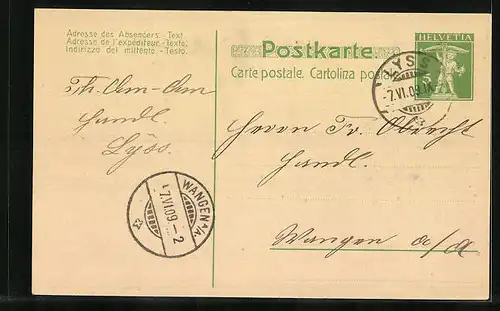 Adresse des Absenders. - Text.
Adresse de l'expéditeur. - Texte.
Indirizzo del mittente. - Testo.
Postkarte.
Carte postale. Cartolina postale.
HELVETIA
5
LYSS
-7.VI.09.IX
Th. Am-Am
Handl.
Lyss.
Herrn Fr. Obrecht
Handl.
Wangen a/A
WANGEN a/A
7.VI.09-2